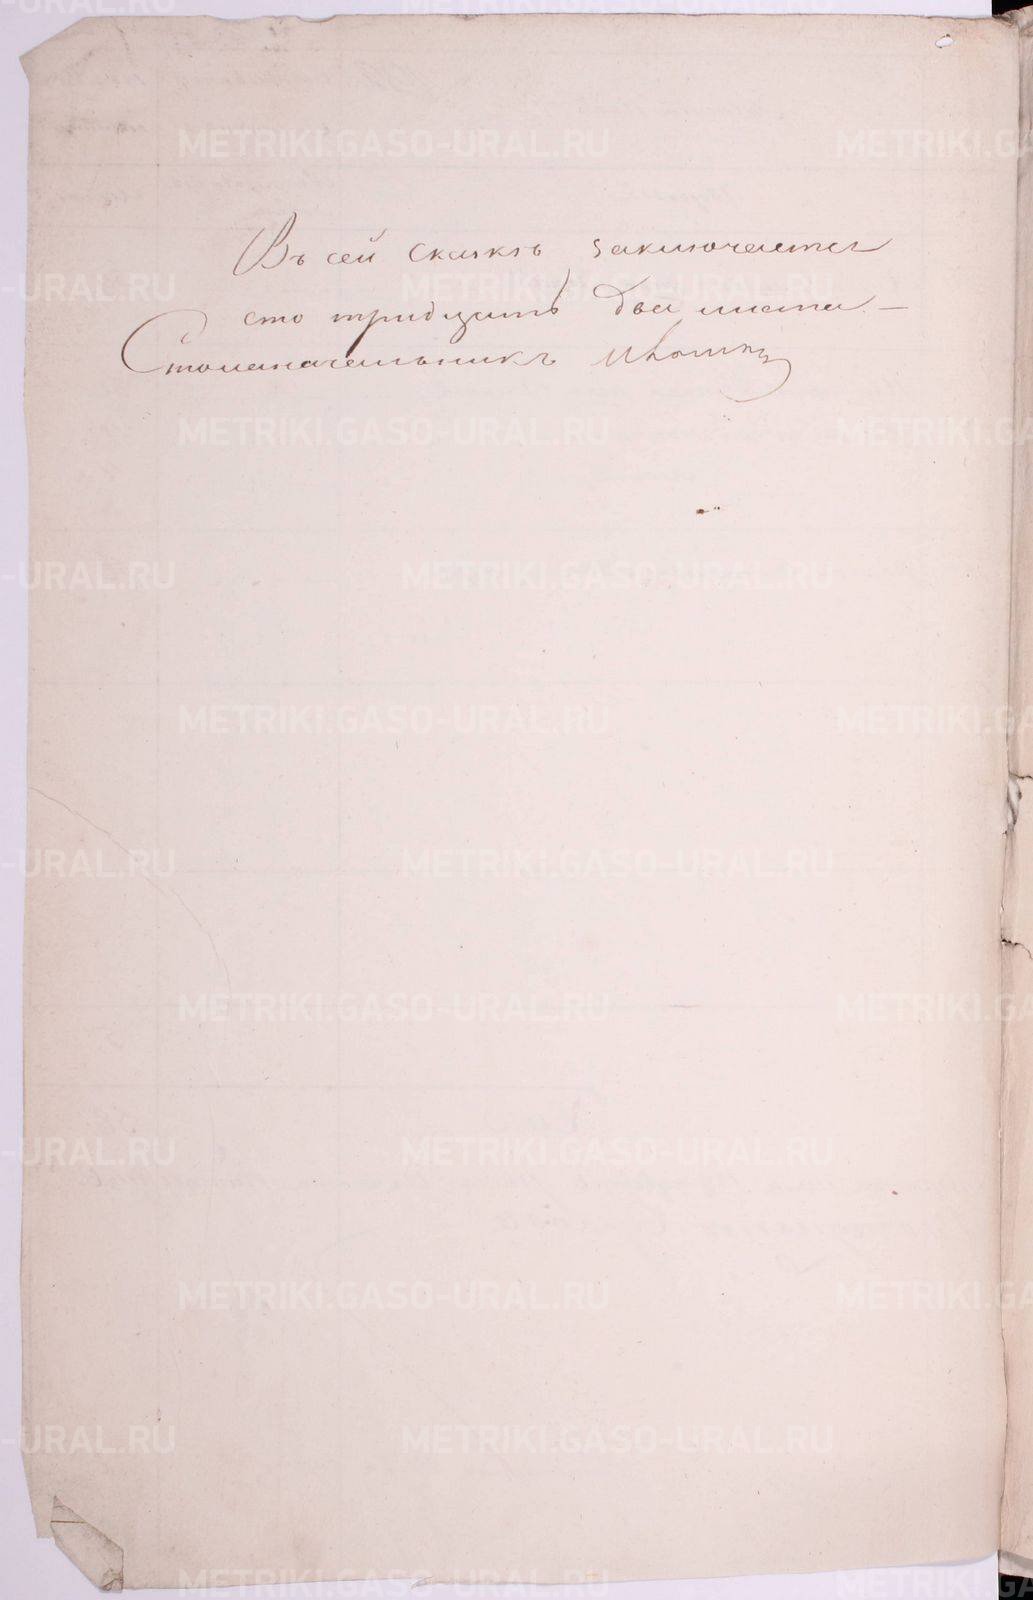 Въ сей сказкѣ заключается
сто тридцать два листа. —
Столоначальникъ
METRIKI.GASO-URAL.RU